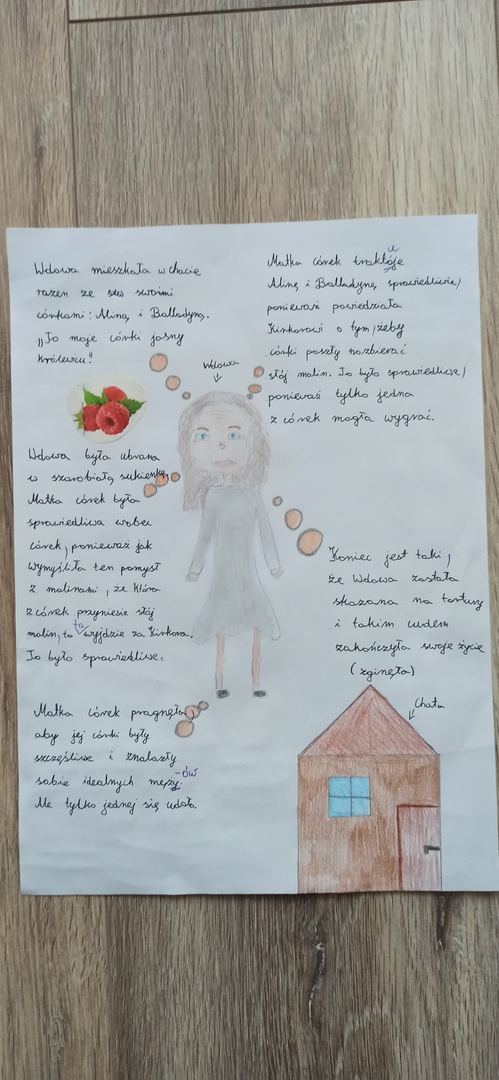 Wdowa mieszkała w chacie
razem ze swoimi
córkami: Aliną i Balladyną.
„To moje córki jasny
królewicu"
Matka córek traktóje
u
Alinę i Balladynę, sprawiedliwie,
ponieważ powiedziała
Kirkorowi o tym, żeby
córki poszły nazbierać
słój malin. To było sprawiedliwe,
ponieważ tylko jedna
z córek mogła wygrać.
Wdowa
Wdowa była ubrana
w szarobiałą sukienkę.
Matka córek była
sprawiedliwa wobec
córek, ponieważ jak
wymyśliła ten pomysł
z malinami, że która
z córek przyniesie słój
malin, to ta wyjdzie za Kirkora.
To było sprawiedliwe.
Koniec jest taki,
że Wdowa została
skazana na tortury
i takim cudem
zakończyła swoje życie
(zginęła)
Matka córek pragnęła,
aby jej córki były
szczęśliwe i znalazły
sobie idealnych męży.
-ów
Ale tylko jednej się udało.
Chata